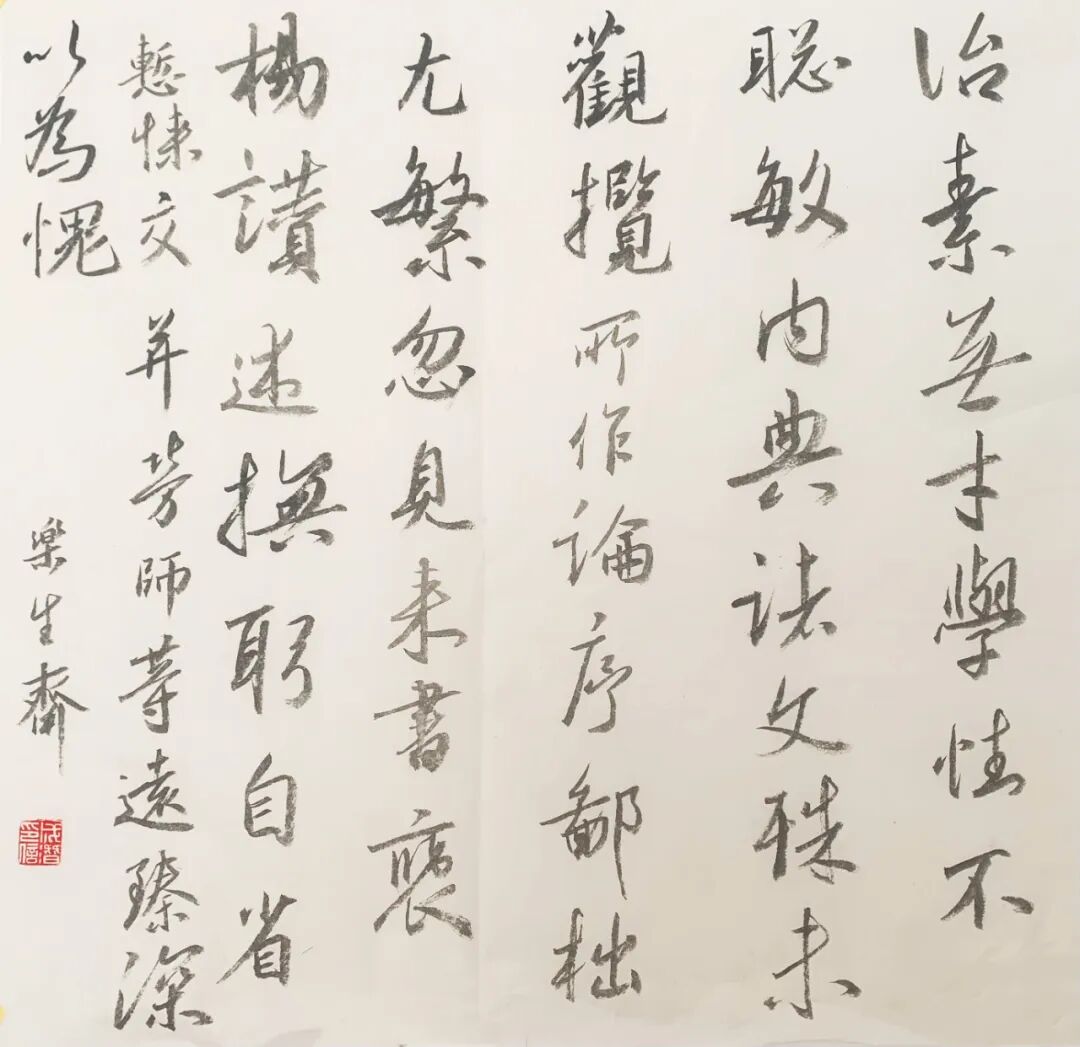 治素無才學性不
聪敏内典諸文殊未
觀攬所作論序鄙拙
尤繁忽見来書褒
揚讃述撫躬自省
慙悚交并勞師等遠臻深
以為愧
樂生齋